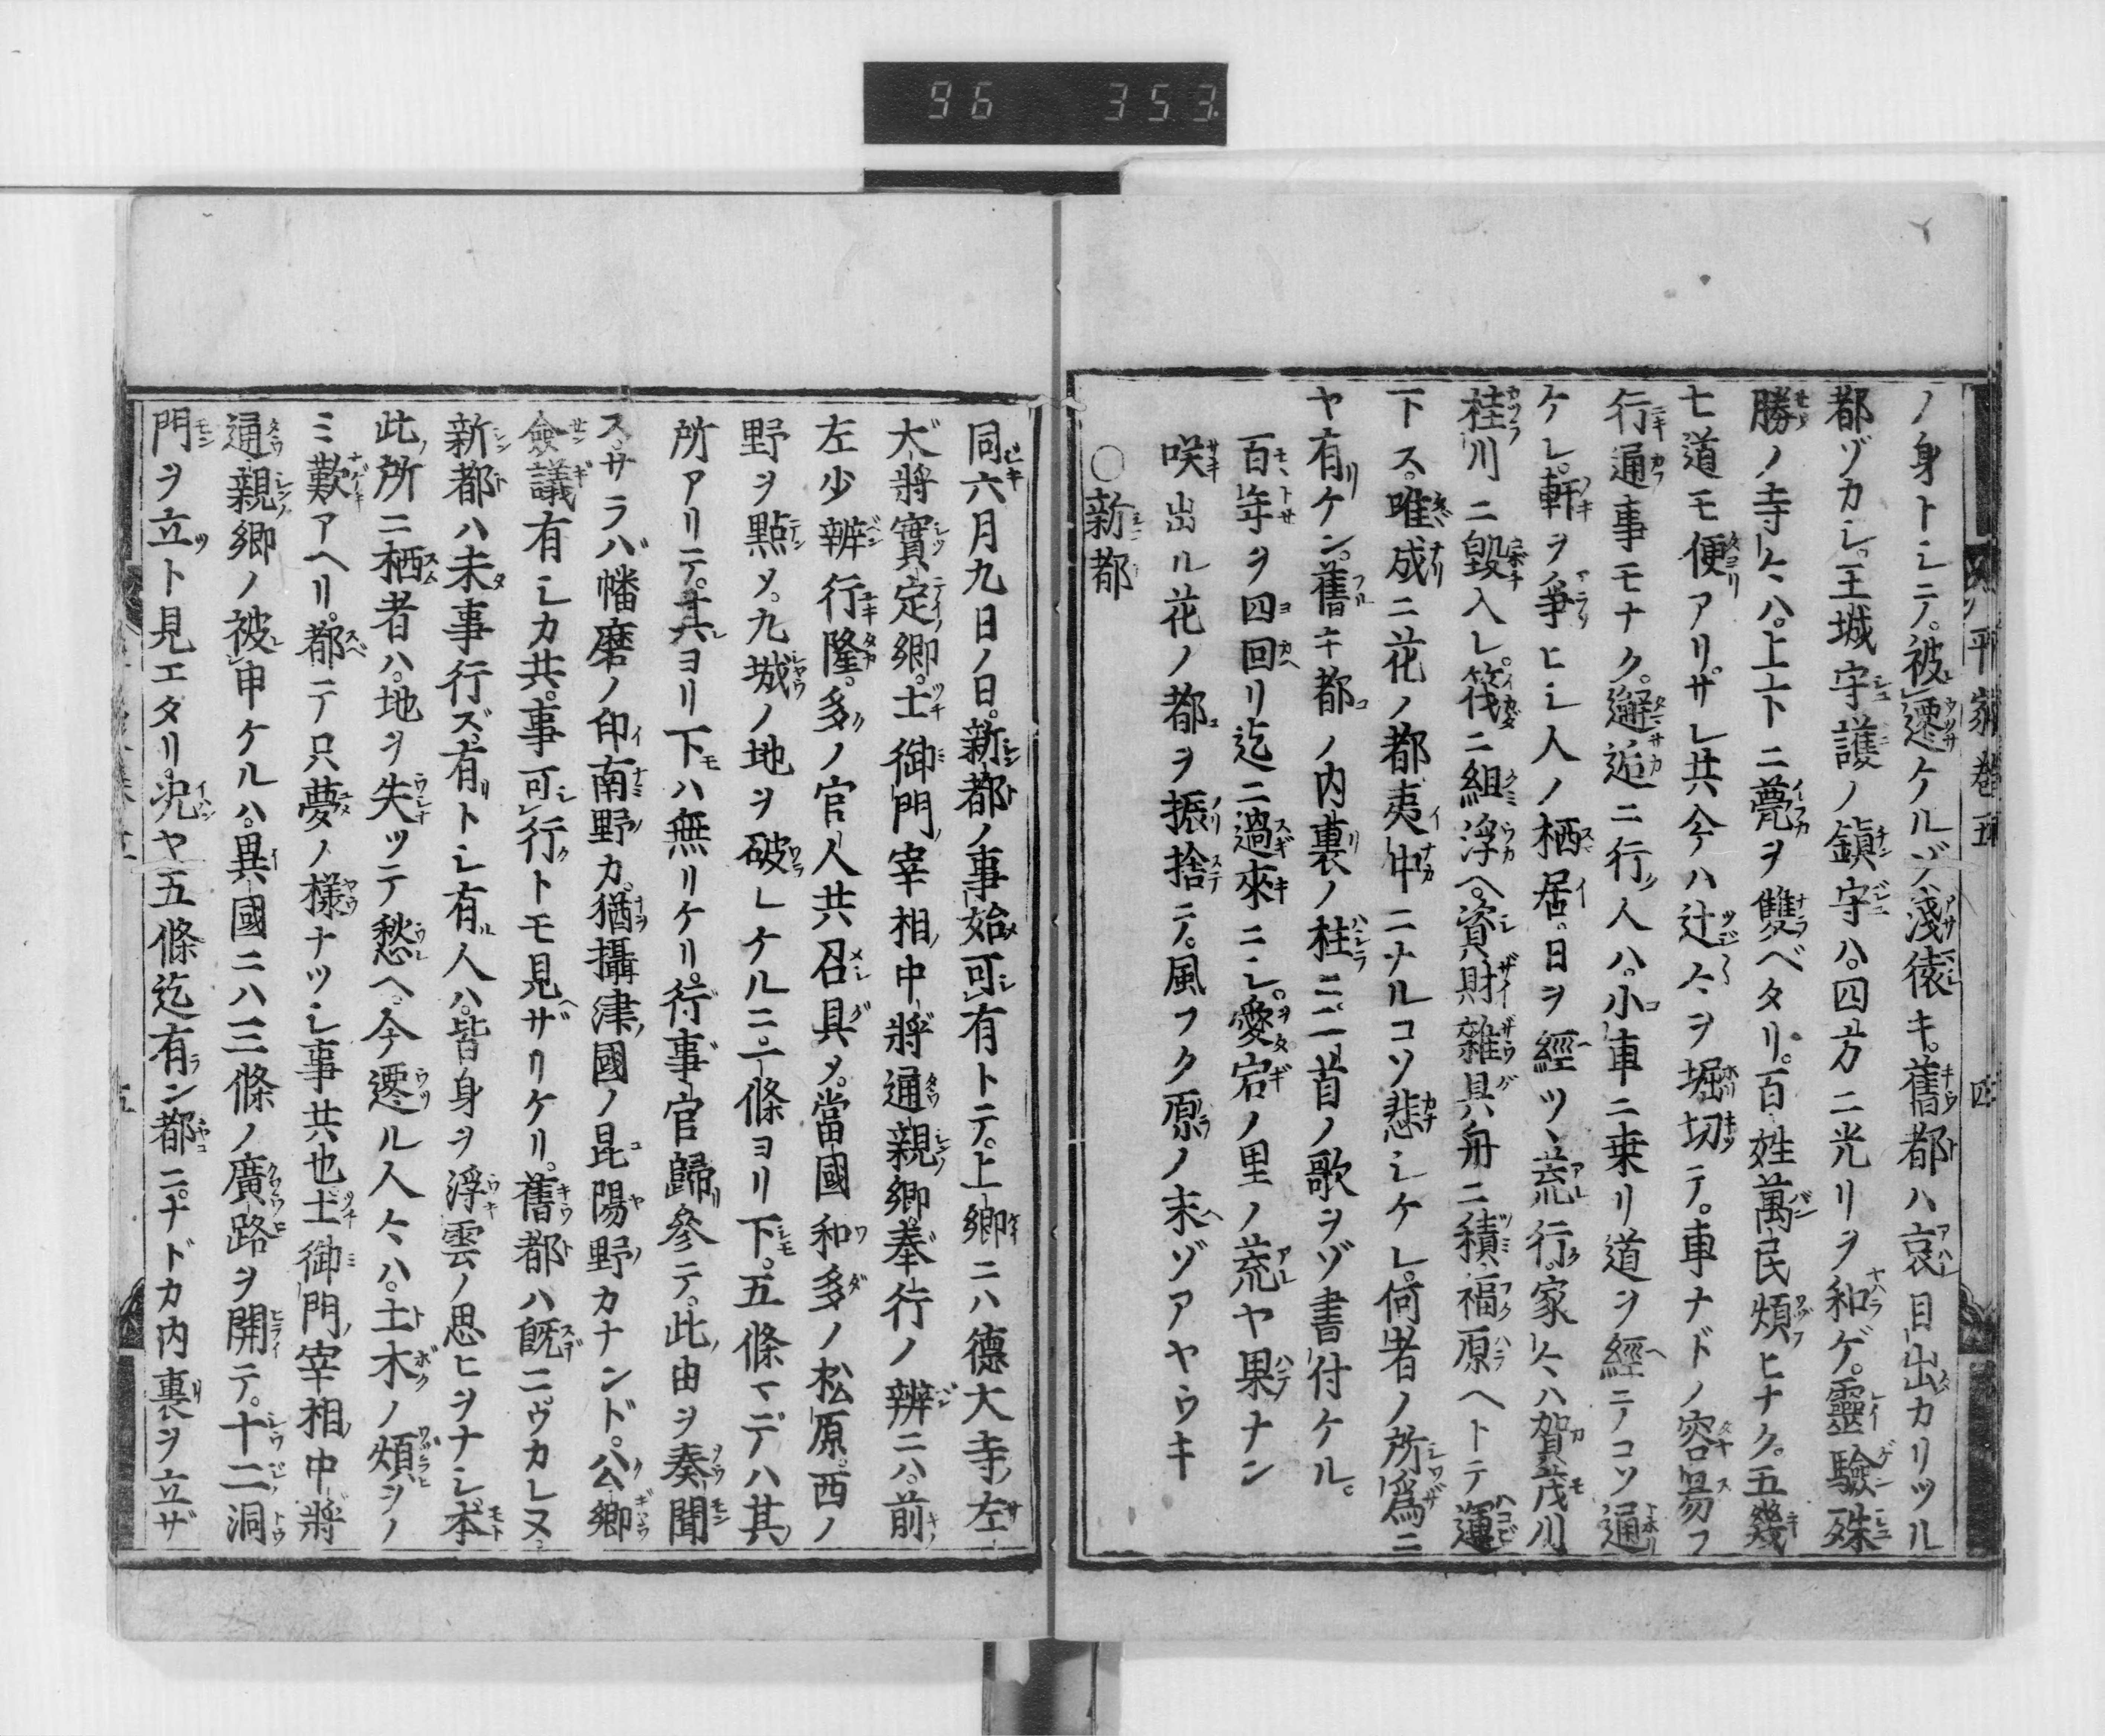 96 353
平家巻五
四
ノ身トシテ。被遷ケルゾ淺猿キ。舊都ハ哀目出カリツル
都ゾカシ。王城守護ノ鎮守ハ。四方ニ光リヲ和ゲ。靈驗殊
勝ノ寺〻ハ。上下ニ甍ヲ雙ベタリ。百姓萬民煩ヒナク。五幾
七道モ便アリ。サレ共今ハ辻〻ヲ堀切テ。車ナドノ容昜フ
行通事モナク。邂逅ニ行人ハ。小車ニ乗リ道ヲ經テコソ通
ケレ。軒ヲ爭ヒシ人ノ栖居。日ヲ經ツヽ荒行。家〻ハ賀茂川
桂川ニ毀入レ。筏ニ組浮ヘ。資財雜具舟ニ積。福原ヘトテ運
下ス。唯成ニ花ノ都夷中ニナルコソ悲シケレ。何者ノ所爲ニ
ヤ有ケン。舊キ都ノ内裏ノ柱ニ。二首ノ歌ヲゾ書付ケル。
百年ヲ四回リ迄ニ過來ニシ。愛宕ノ里ノ荒ヤ果ナン
咲出ル花ノ都ヲ振捨テ。風フク原ノ末ゾアヤウキ
〇新都
同六月九日ノ日。新都ノ事始可有トテ。上卿ニハ德大寺左
大將實定卿。土御門宰相中將通親卿。奉行ノ辨ニハ。前
左少辨行隆。多ノ官人共召具メ。當國和多ノ松原。西ノ
野ヲ點メ。九城ノ地ヲ破レケルニ。一條ヨリ下。五條マデハ其
所アリテ。其ヨリ下ハ無リケリ。行事官歸參テ。此由ヲ奏聞
ス。サラバ幡磨ノ印南野カ。猶攝津國ノ昆陽野カナンド。公卿
僉議有シカ共。事可行トモ見ザリケリ。舊都ハ既ニウカレヌ
新都ハ未事行ズ。有トシ有人ハ。皆身ヲ浮雲ノ思ヒヲナシ本
此所ニ栖者ハ。地ヲ失ツテ愁ヘ。今遷ル人〻ハ。土木ノ煩ヲノ
ミ歎アヘリ。都テ只夢ノ樣ナツシ事共也土御門宰相中將
通親卿ノ被申ケルハ。異國ニハ三條ノ廣路ヲ開テ。十二洞
門ヲ立ト見エタリ。况ヤ五條迄有ン都ニ。ナドカ内裏ヲ立ザ
五